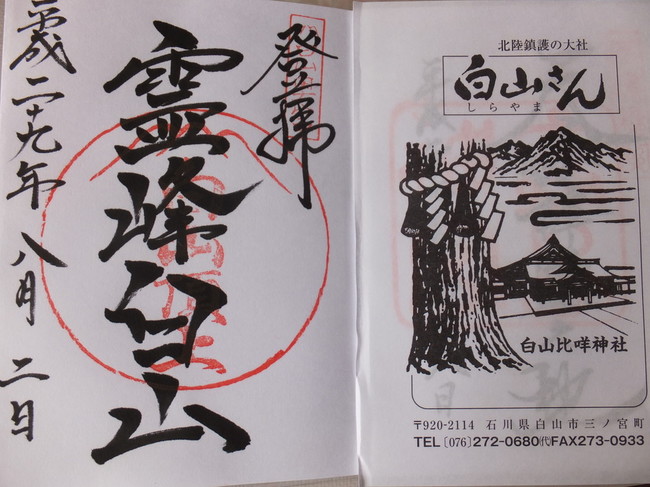 登拝
霊峰白山
平成二十九年八月二日
北陸鎮護の大社
白山さん
しらやま
白山比咩神社
〒920-2114 石川県白山市三ノ宮町
TEL〔076〕272-0680㈹FAX273-0933